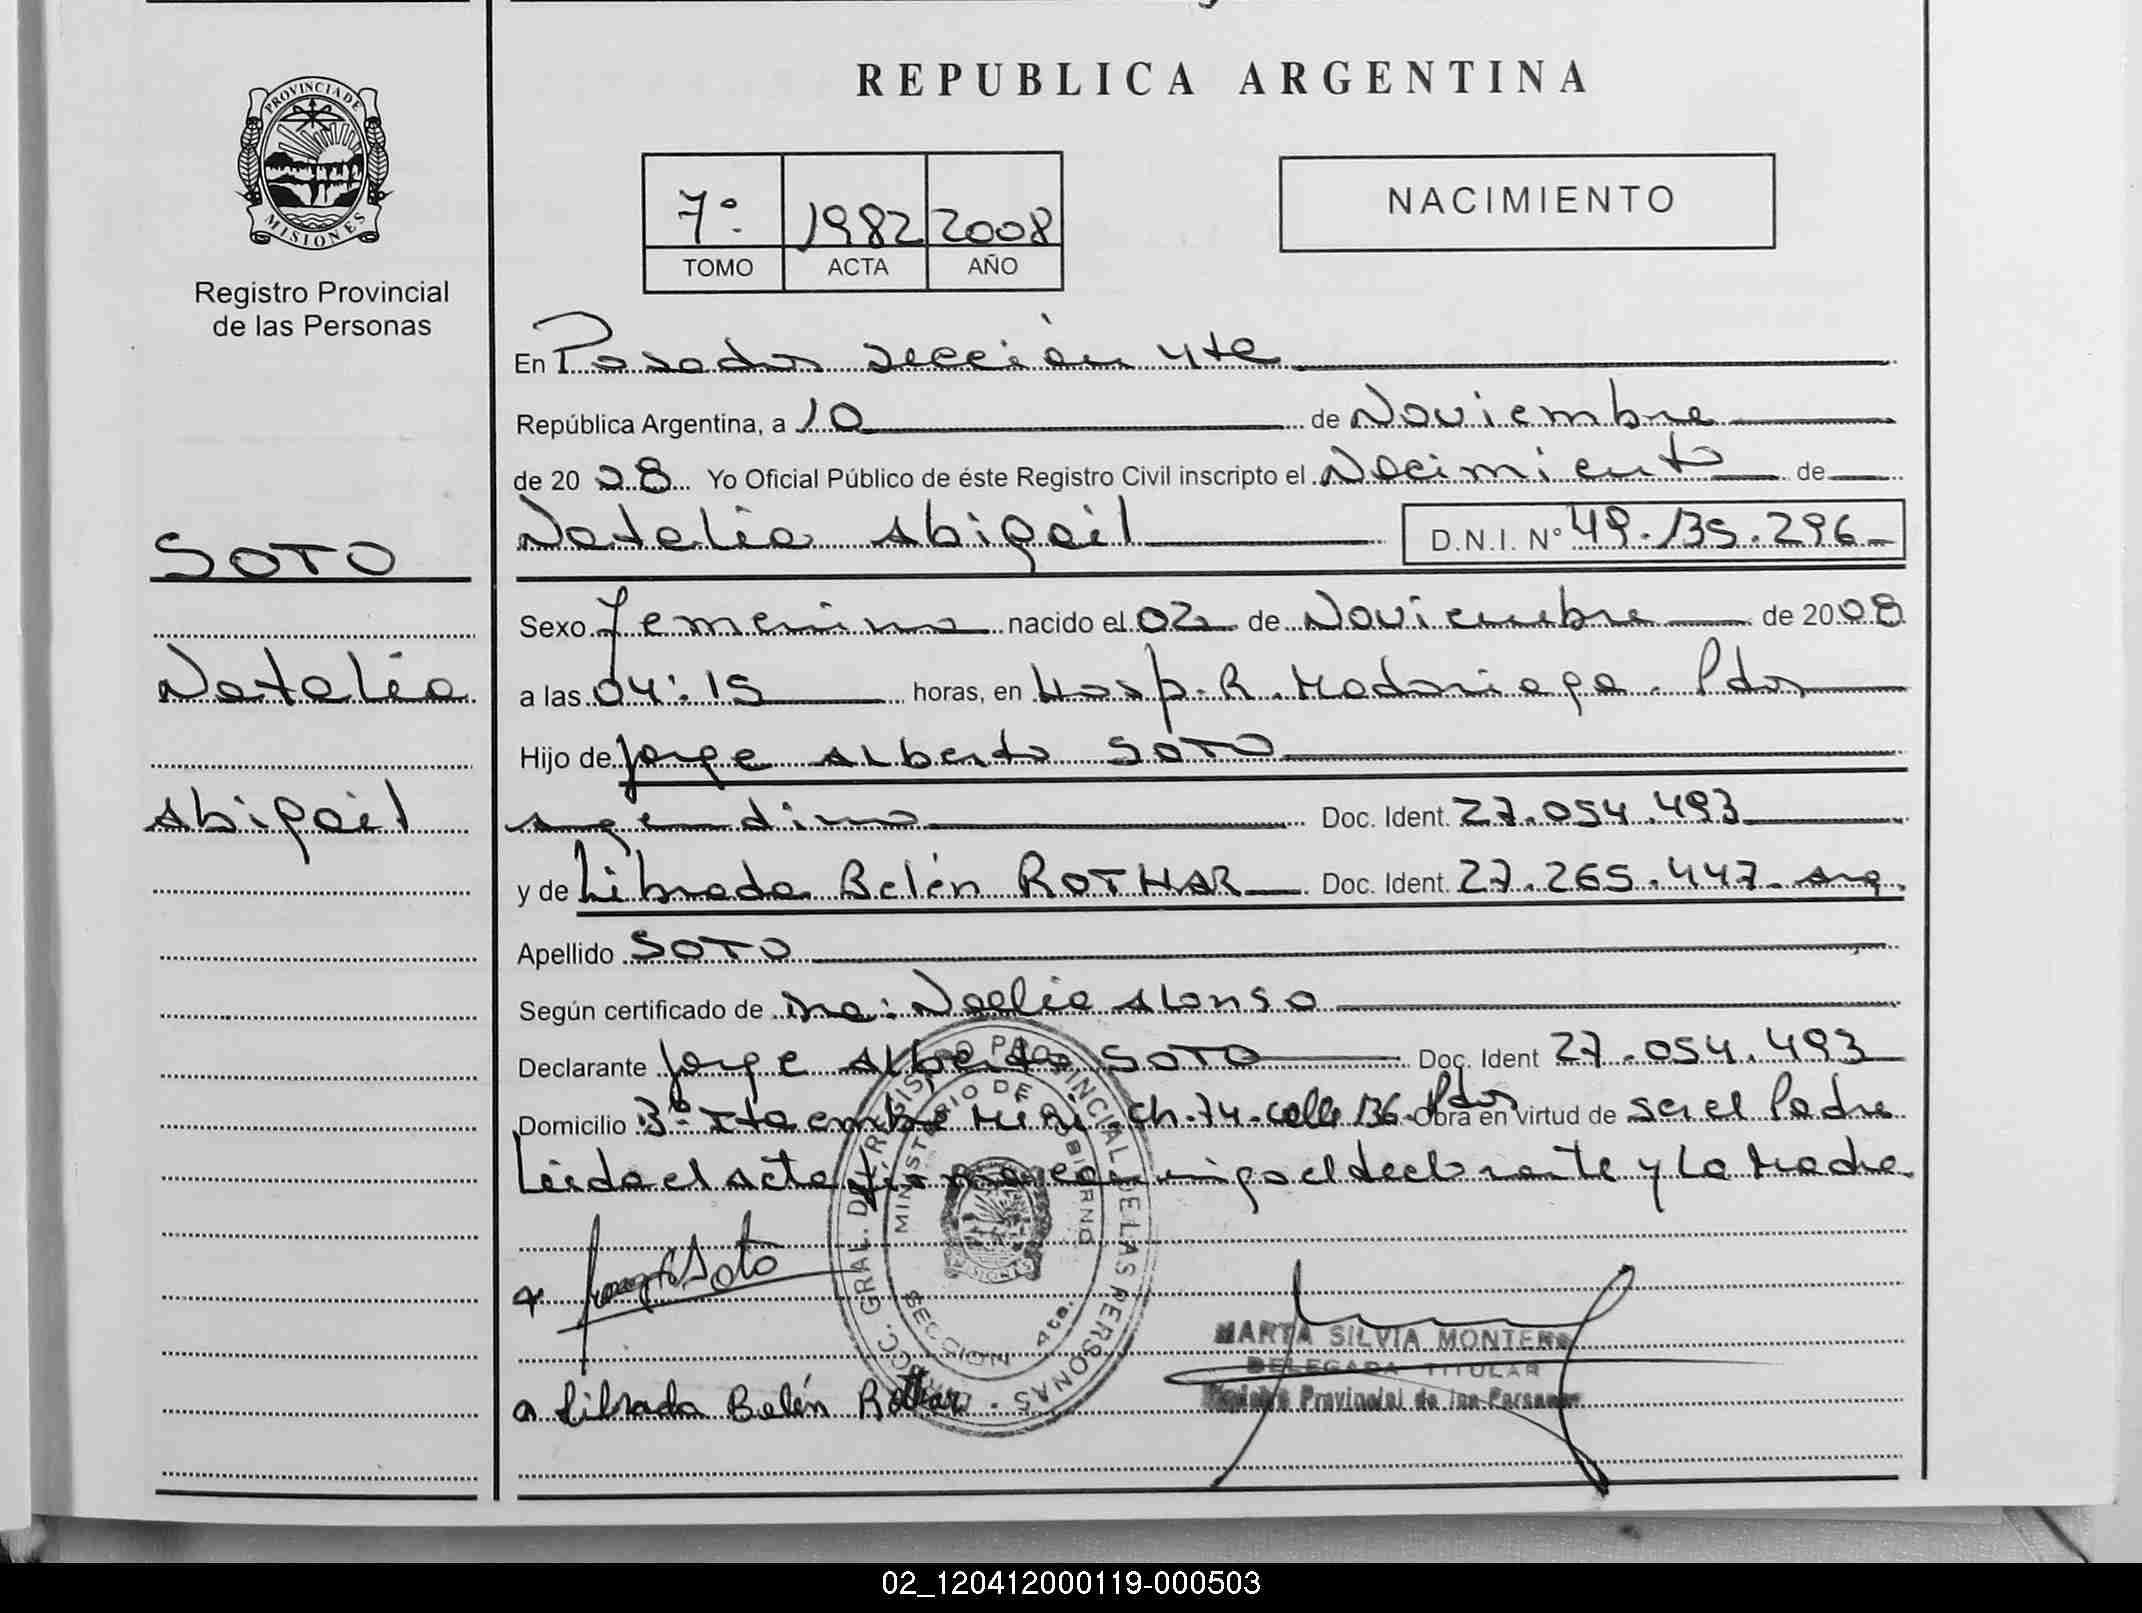 PROVINCIA DE
MISIONES
Registro Provincial
de las Personas
SOTO
Natalia
Abigail
REPUBLICA ARGENTINA
7º 1982 2008
TOMO ACTA AÑO
NACIMIENTO
En Posadas sección 4ta
República Argentina, a 10 de Noviembre
de 20 08 Yo Oficial Público de éste Registro Civil inscripto el Nacimiento de
Natalia Abigail D.N.I. Nº 49.135.296
Sexo femenino nacido el 02 de Noviembre de 20 08
a las 04:15 horas, en Hosp. R. Madariaga. Pdas
Hijo de Jorge Alberto SOTO
argentino Doc. Ident. 27.054.493
y de Librada Belén ROTHAR Doc. Ident. 27.265.447 arg.
Apellido SOTO
Según certificado de Dra: Noelia Alonso
Declarante Jorge Alberto SOTO Doc. Ident 27.054.493
Domicilio Bº Itaembé Miní Ch. 74 calle 136 Pdas Obra en virtud de ser el Padre
Leida el acta firma conmigo el declarante y la Madre
Soto
MARTA SILVIA MONTERO
DELEGADA TITULAR
Registro Provincial de las Personas
Librada Belén Rothar
GRAL. DEL REGISTRO PROVINCIAL DE LAS PERSONAS
MINISTERIO DE GOBIERNO
SECCION 4ta.
MISIONES
02_120412000119-000503